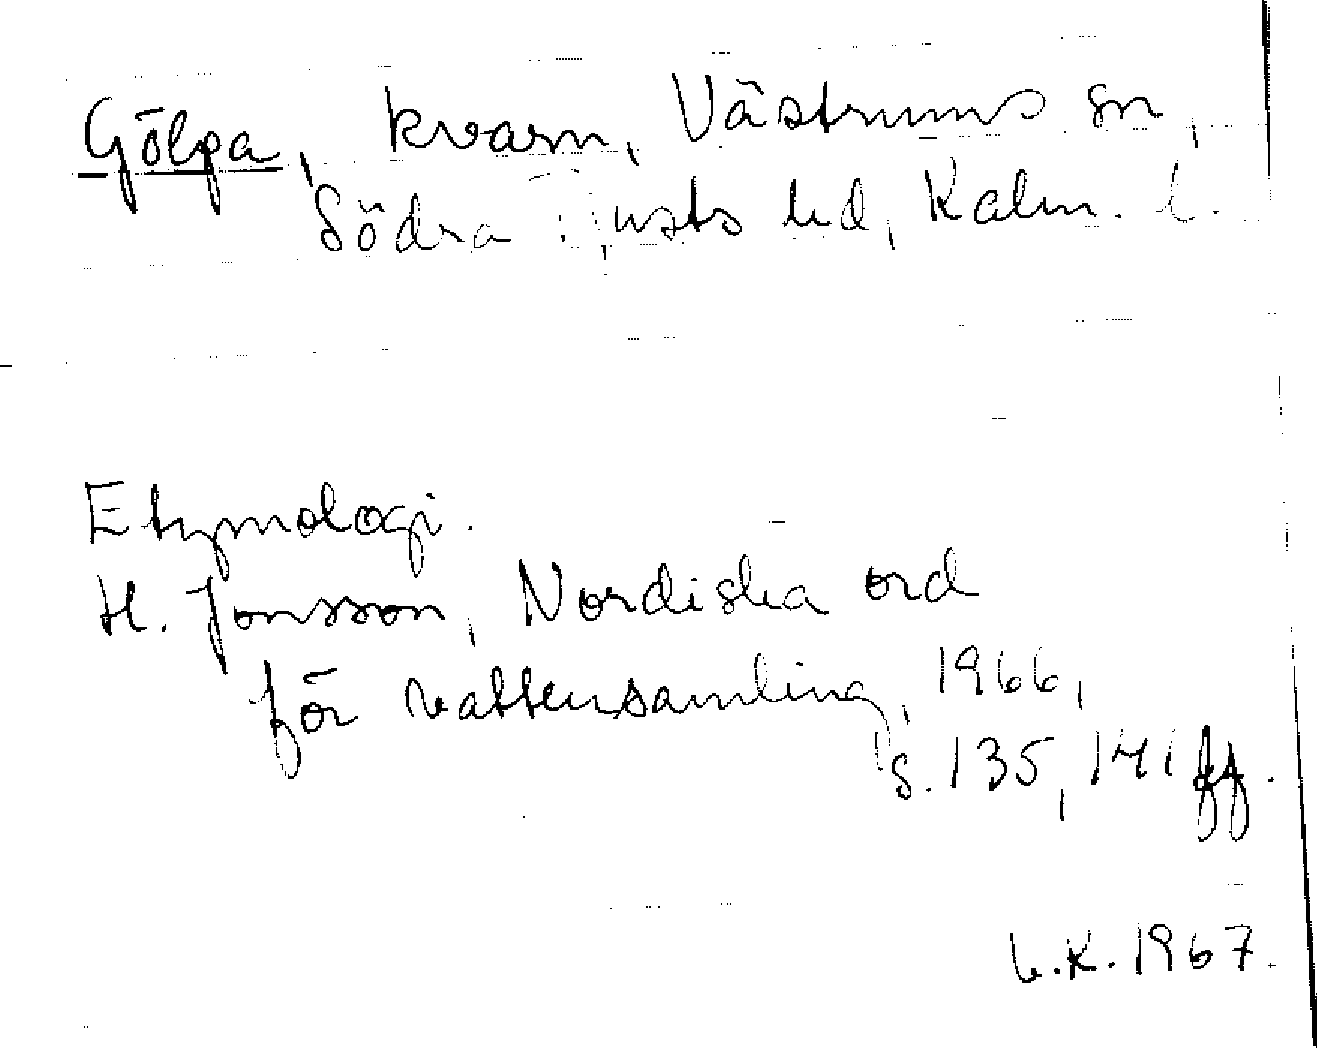 Gölpa, kvarn, Västrums sn,
Södra Tjusts hd, Kalm. l.
Etymologi.
H. Jonsson, Nordiska ord
för vattensamling, 1966,
s. 135, 141 ff.
L.K. 1967.